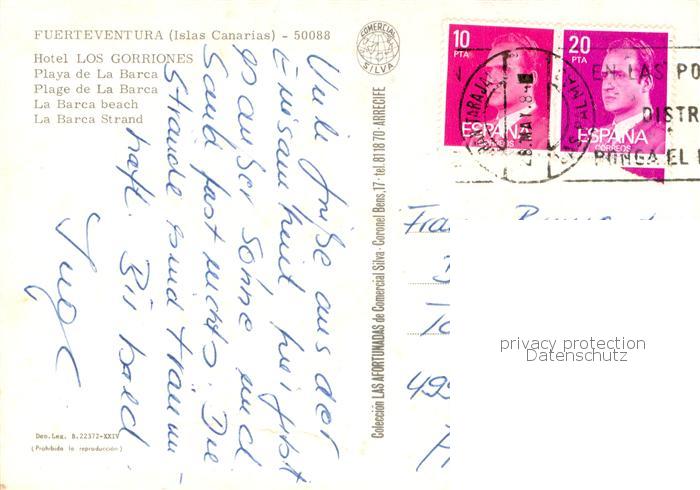 FUERTEVENTURA (Islas Canarias) - 50088
Hotel LOS GORRIONES
Playa de La Barca
Plage de La Barca
La Barca beach
La Barca Strand
Viele Grüße aus der
Einsamkeit hier gibt
es außer Sonne und
Sand fast nichts. Die
Strände sind traum-
haft. Bis bald
Inge
Dep. Leg. B. 22372-XXIV
(Prohibida la reproducción)
COMERCIAL
SILVA
Colección LAS AFORTUNADAS de Comercial Silva - Coronel Bens, 17 - tel. 81 18 70 - ARRECIFE
10
PTA
ESPAÑA
CORREOS
20
PTA
ESPAÑA
CORREOS
28. MAY. 84
EN LAS PO
DISTR
PONGA EL
privacy protection
Datenschutz